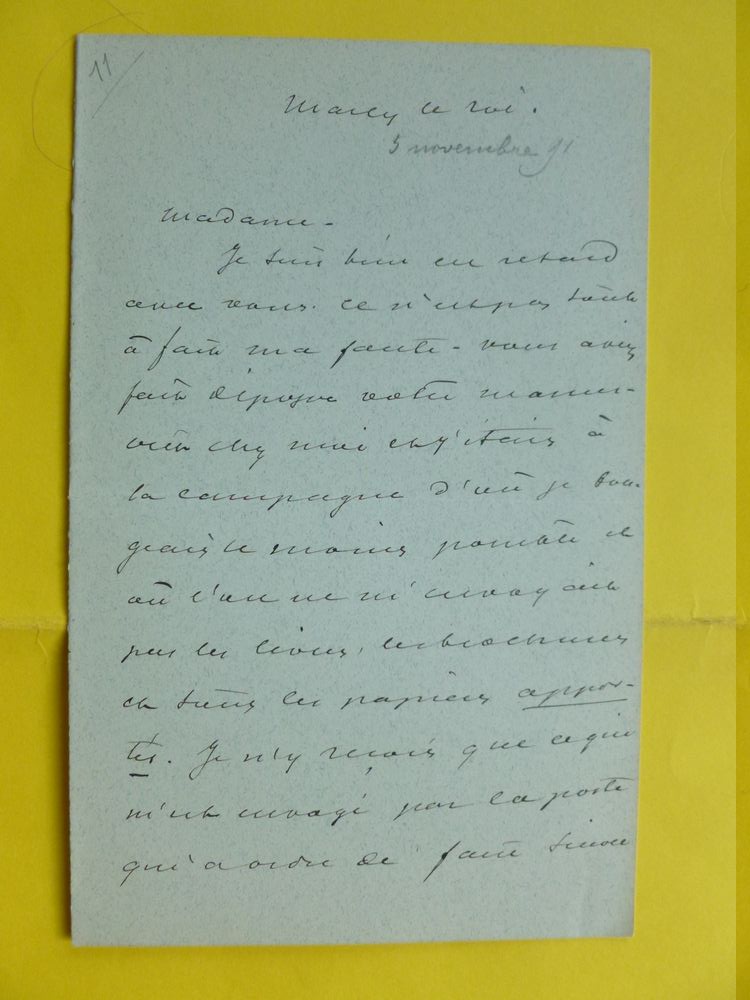 11
Marly le roi.
5 novembre 91
Madame -
Je suis bien en retard
avec vous. ce n'est pas tout
à fait ma faute - vous aviez
fait déposer votre manus-
crit chez moi et j'étais à
la campagne d'où je bou-
geais le moins possible et
où l'on ne m'envoyait
pas les livres, les brochures
et tous les papiers appor-
tés. Je n'y reçois que ce qui
m'est envoyé par la poste
qui a ordre de faire suivre